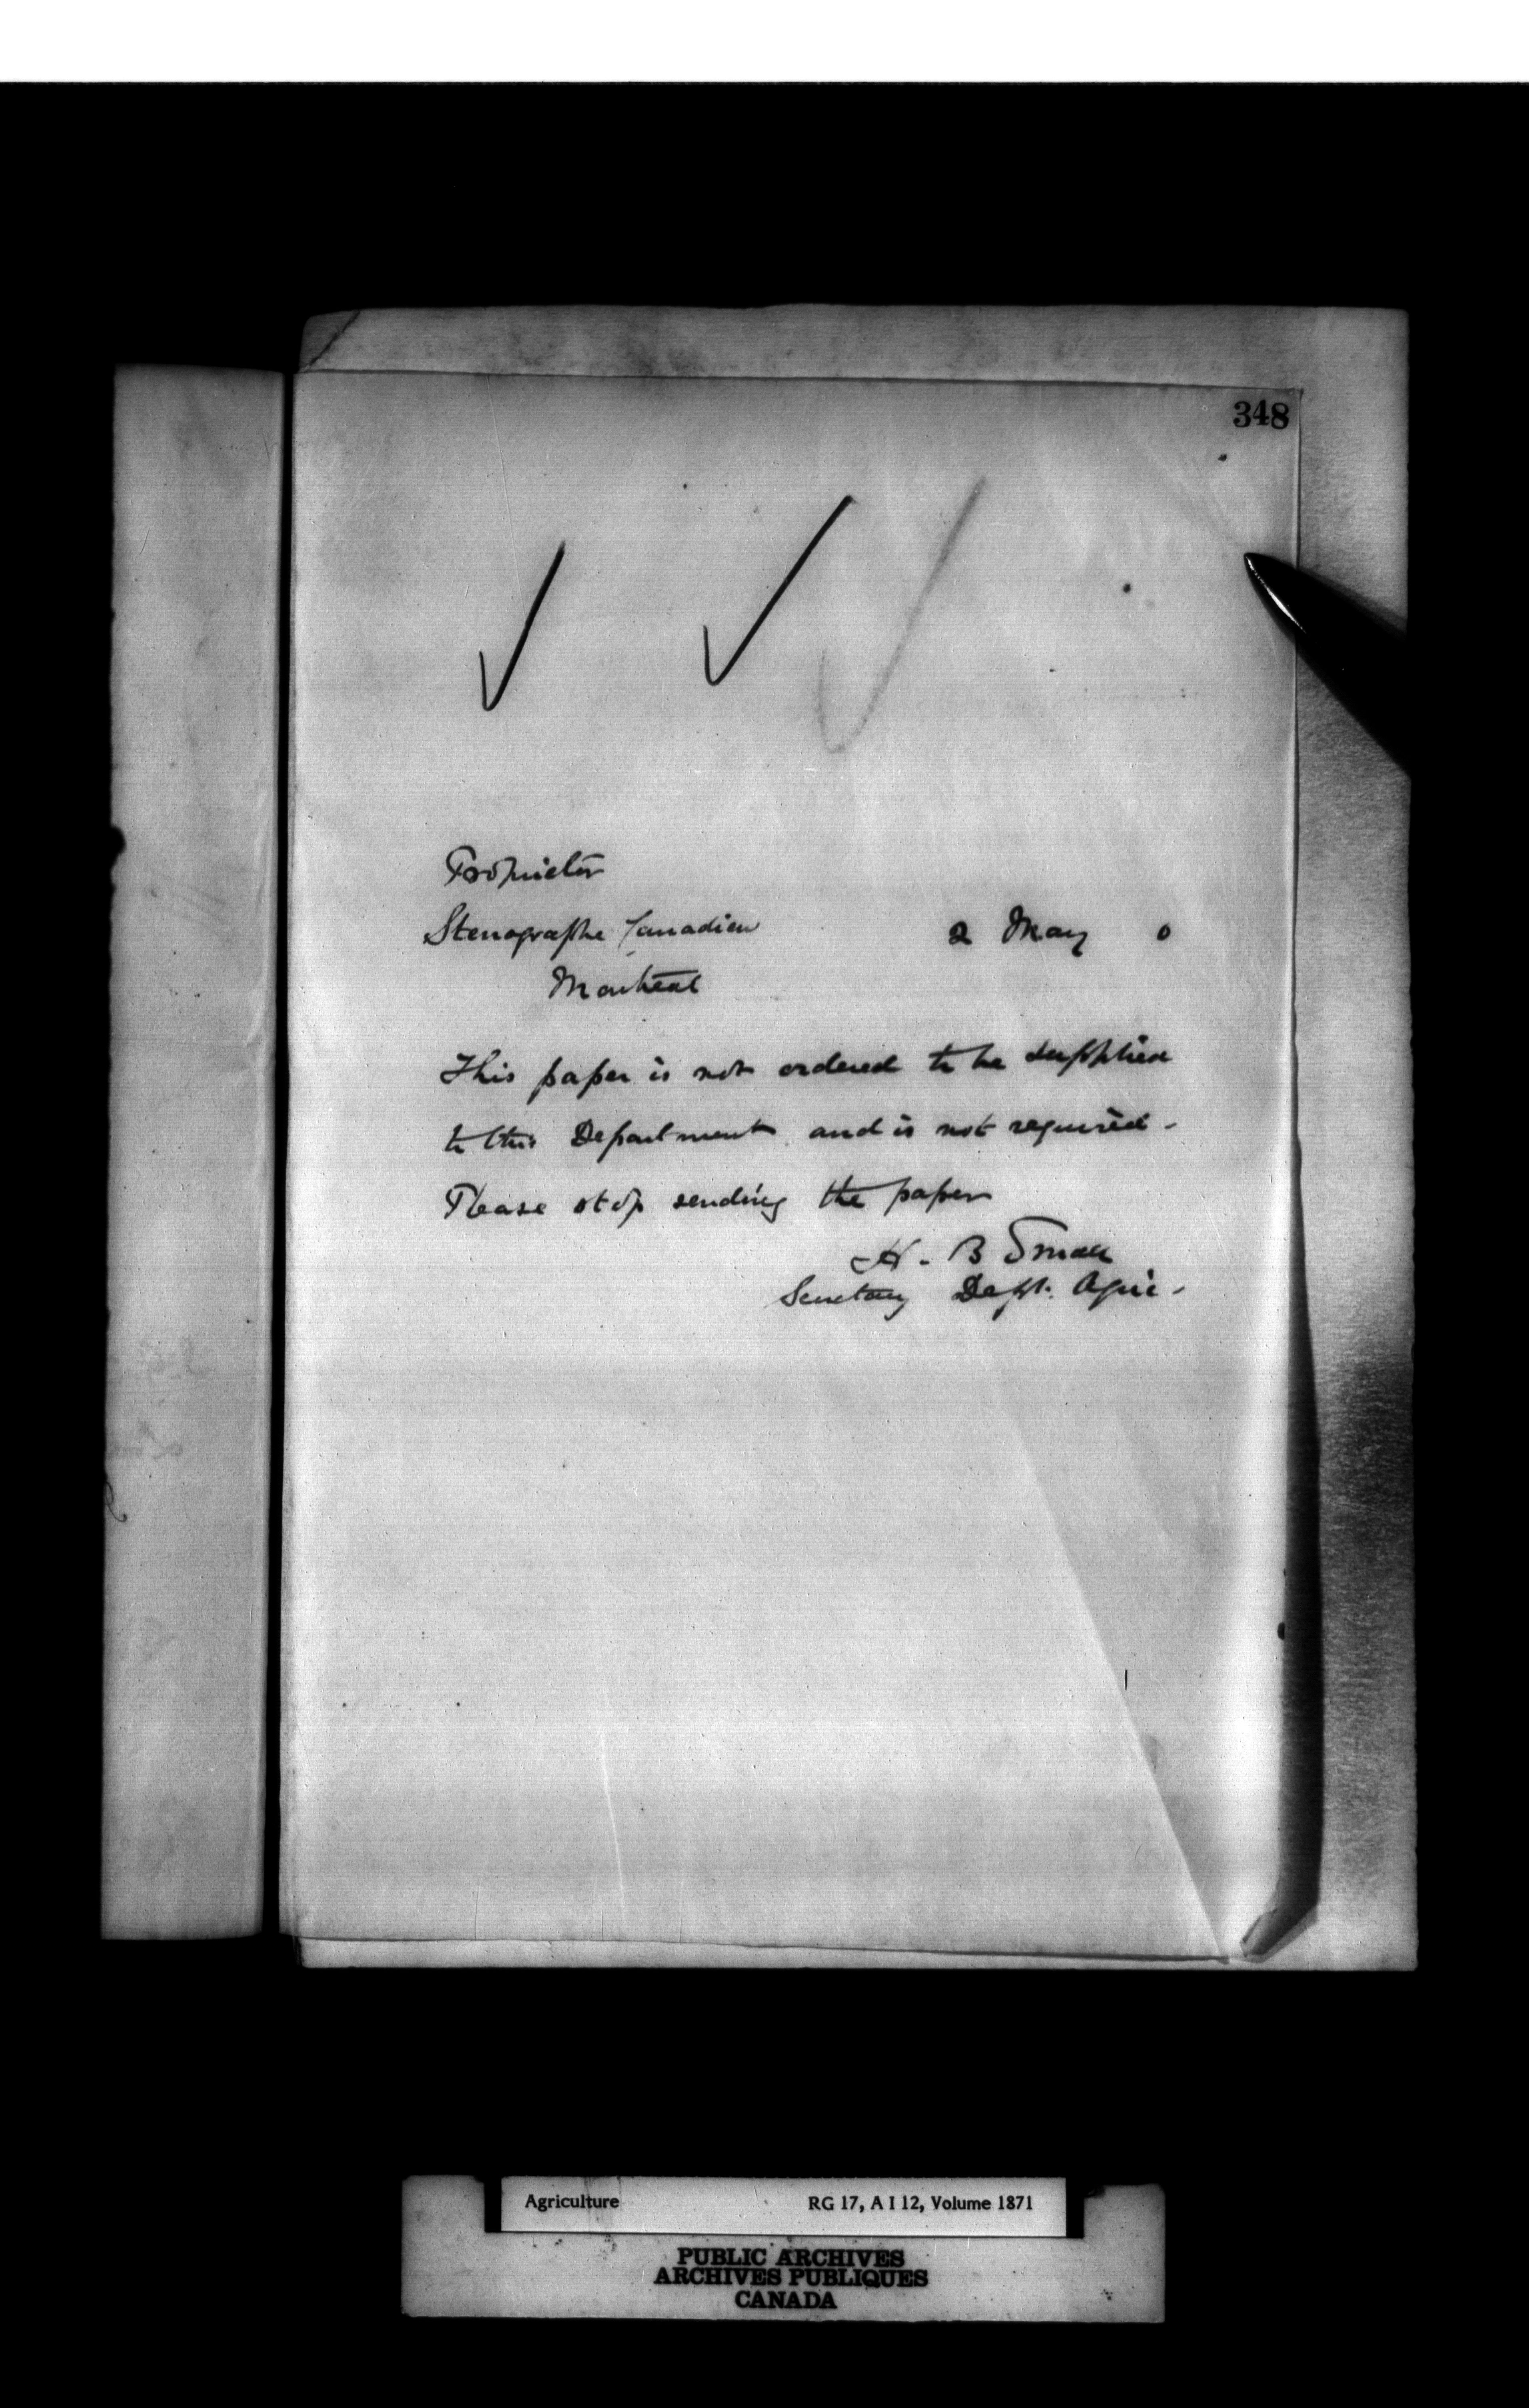 348
Proprietor
Stenographe Canadien 2 May 0
Montreal
This paper is not ordered to be supplied
to this Department and is not required -
Please stop sending the paper
H. B Small
Secretary Dept. Agric -
Agriculture RG 17, A I 12, Volume 1871
PUBLIC ARCHIVES
ARCHIVES PUBLIQUES
CANADA